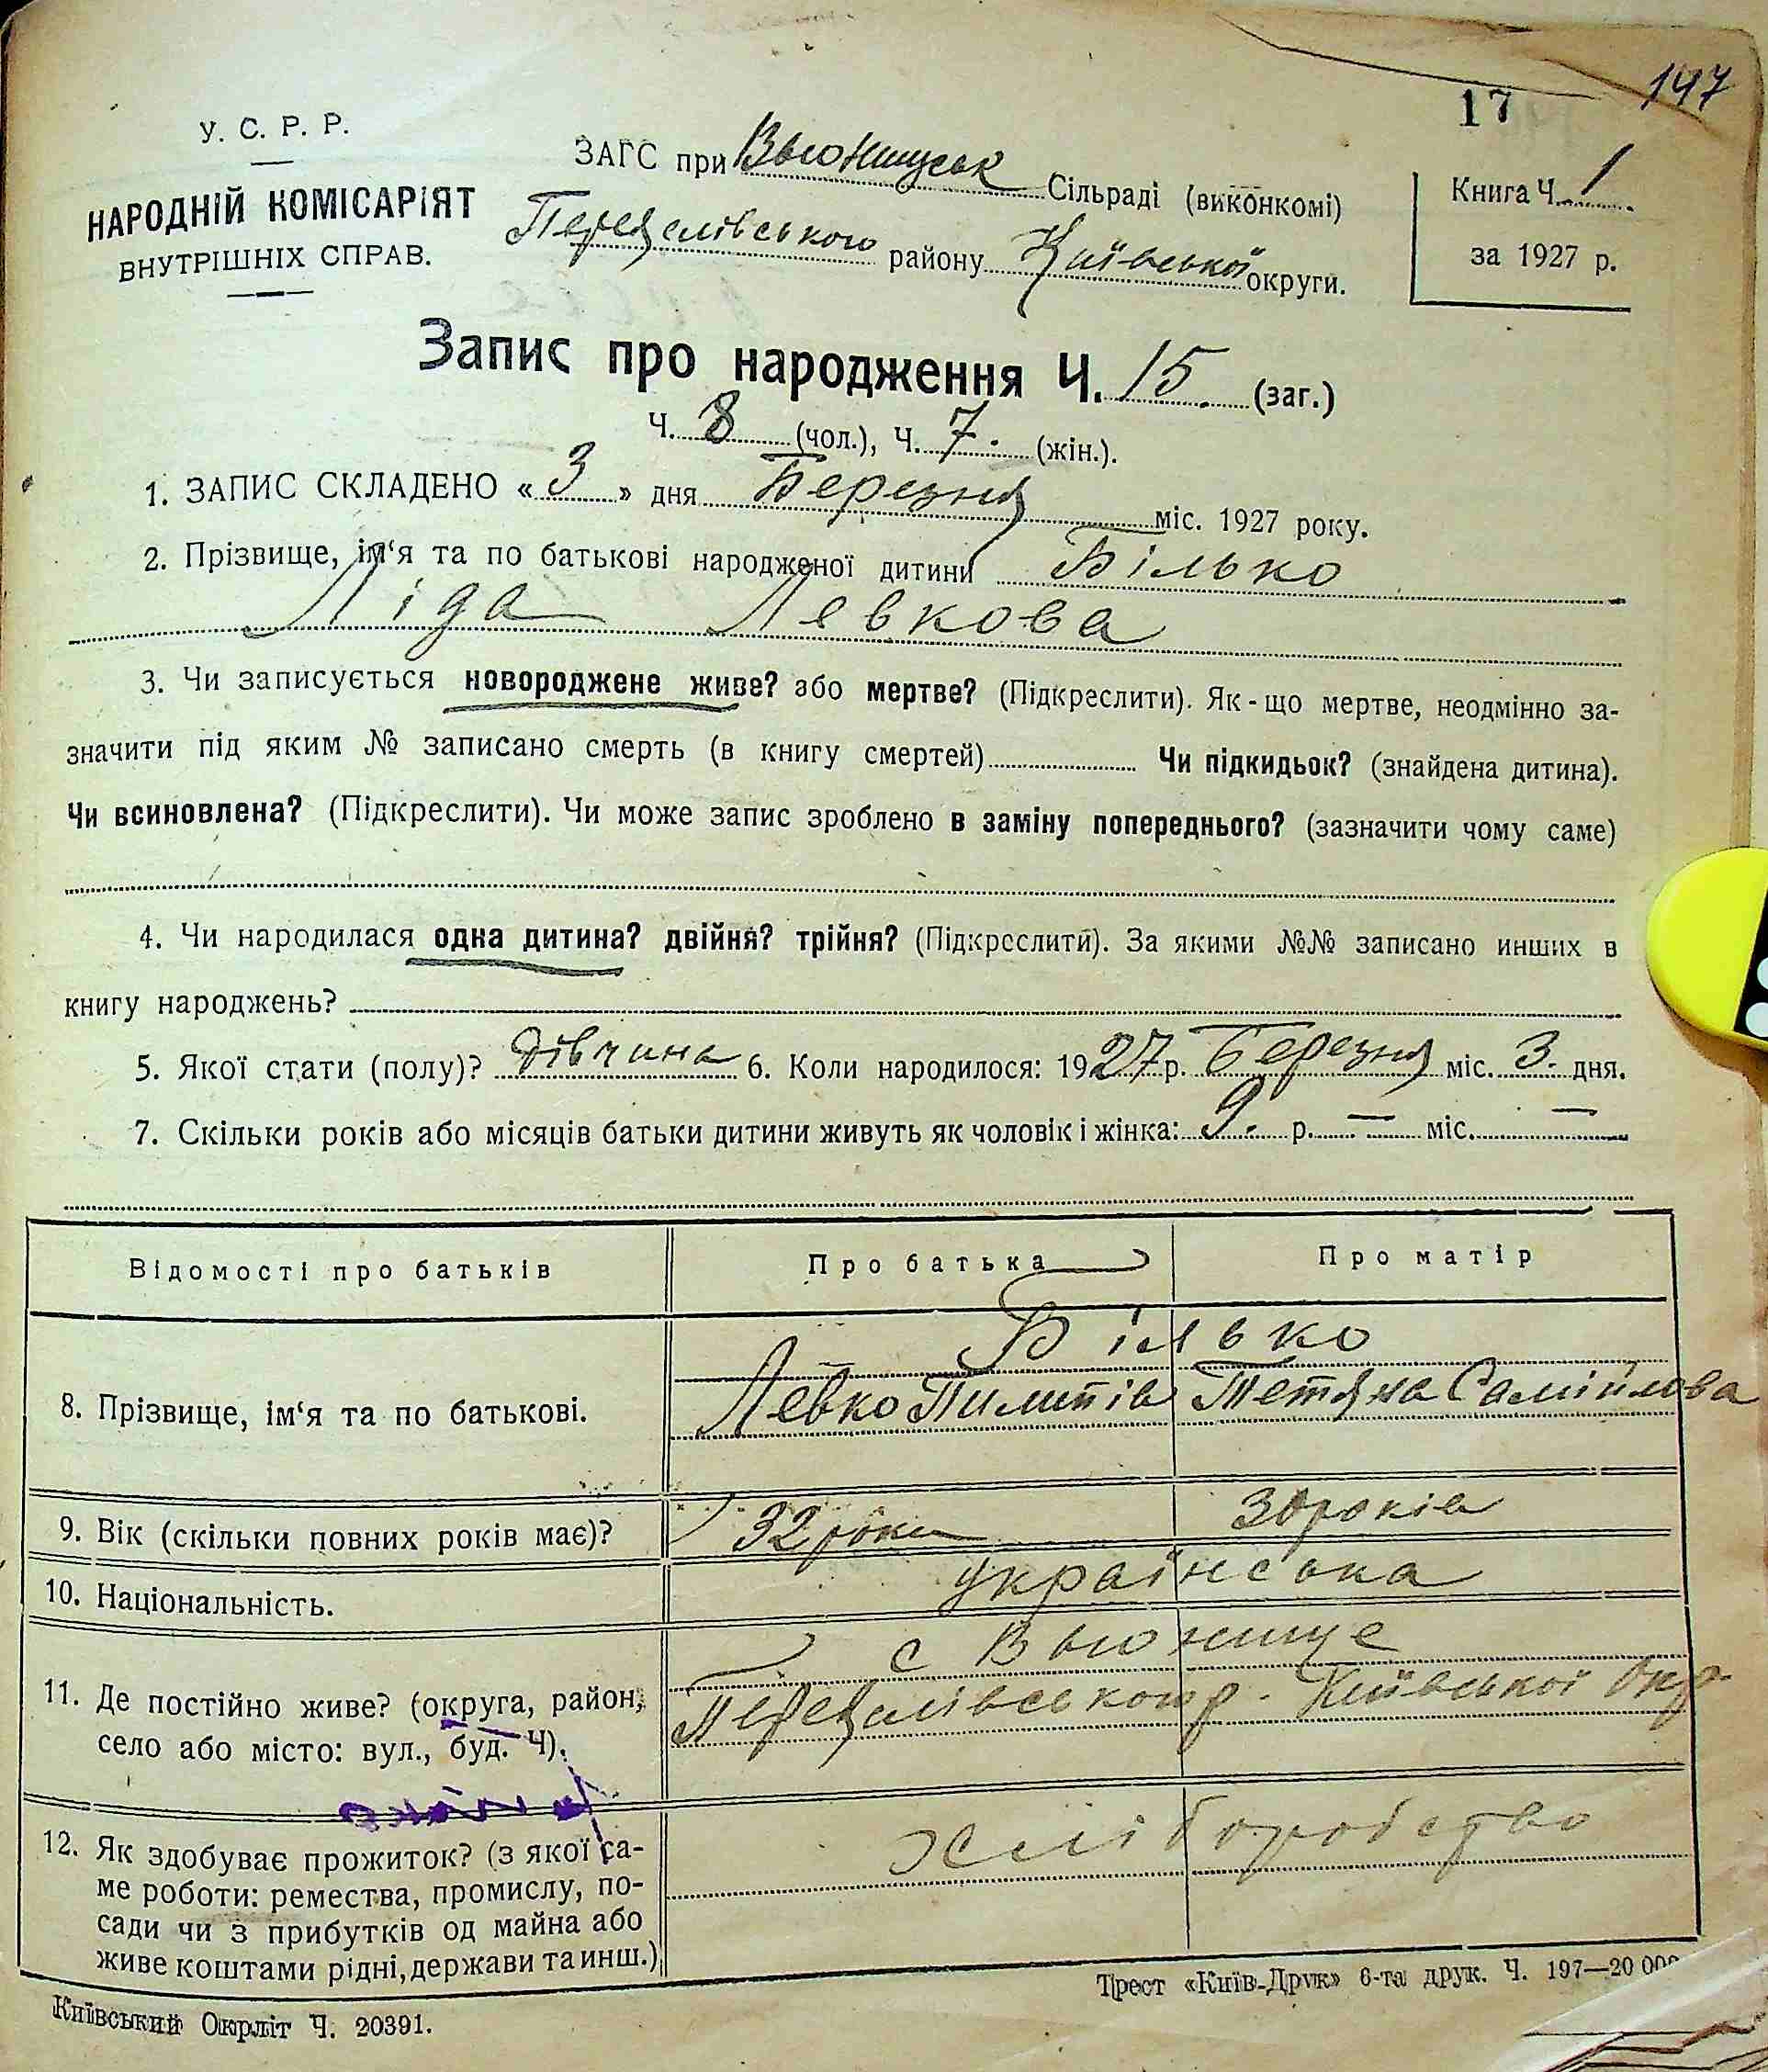 147
17
У. С. Р. Р.
НАРОДНІЙ КОМІСАРІЯТ
ВНУТРІШНІХ СПРАВ.
ЗАГС при Вьюнищськ Сільраді (виконкомі)
Переяслівського району Київської округи.
Книга Ч. 1
за 1927 р.
Запис про народження Ч. 15. (заг.)
Ч. 8 (чол.), Ч. 7. (жін.).
1. ЗАПИС СКЛАДЕНО « 3 » дня Березня міс. 1927 року.
2. Прізвище, ім‘я та по батькові народженої дитини Білько
Ліда Левкова
3. Чи записується новороджене живе? або мертве? (Підкреслити). Як-що мертве, неодмінно за-
значити під яким № записано смерть (в книгу смертей) Чи підкидьок? (знайдена дитина).
Чи всиновлена? (Підкреслити). Чи може запис зроблено в заміну попереднього? (зазначити чому саме)
4. Чи народилася одна дитина? двійня? трійня? (Підкреслити). За якими №№ записано инших в
книгу народжень?
5. Якої стати (полу)? дівчина 6. Коли народилося: 1927 р. Березня міс. 3. дня.
7. Скільки років або місяців батьки дитини живуть як чоловік і жінка: 9. р. — міс. —
Відомості про батьків Про батька Про матір
Білько
8. Прізвище, ім‘я та по батькові. Левко Пилипів Тетяна Самійлова
9. Вік (скільки повних років має)? 32 роки 30 років
10. Національність. українська
с Вьюнище
11. Де постійно живе? (округа, район, Переяслівського р. Київської Окр.
село або місто: вул., буд. Ч).
12. Як здобуває прожиток? (з якої са- хліборобство
ме роботи: ремества, промислу, по-
сади чи з прибутків од майна або
живе коштами рідні, держави та инш.)
Київський Окрліт Ч. 20391.
Трест «Київ-Друк» 6-та друк. Ч. 197—20 000